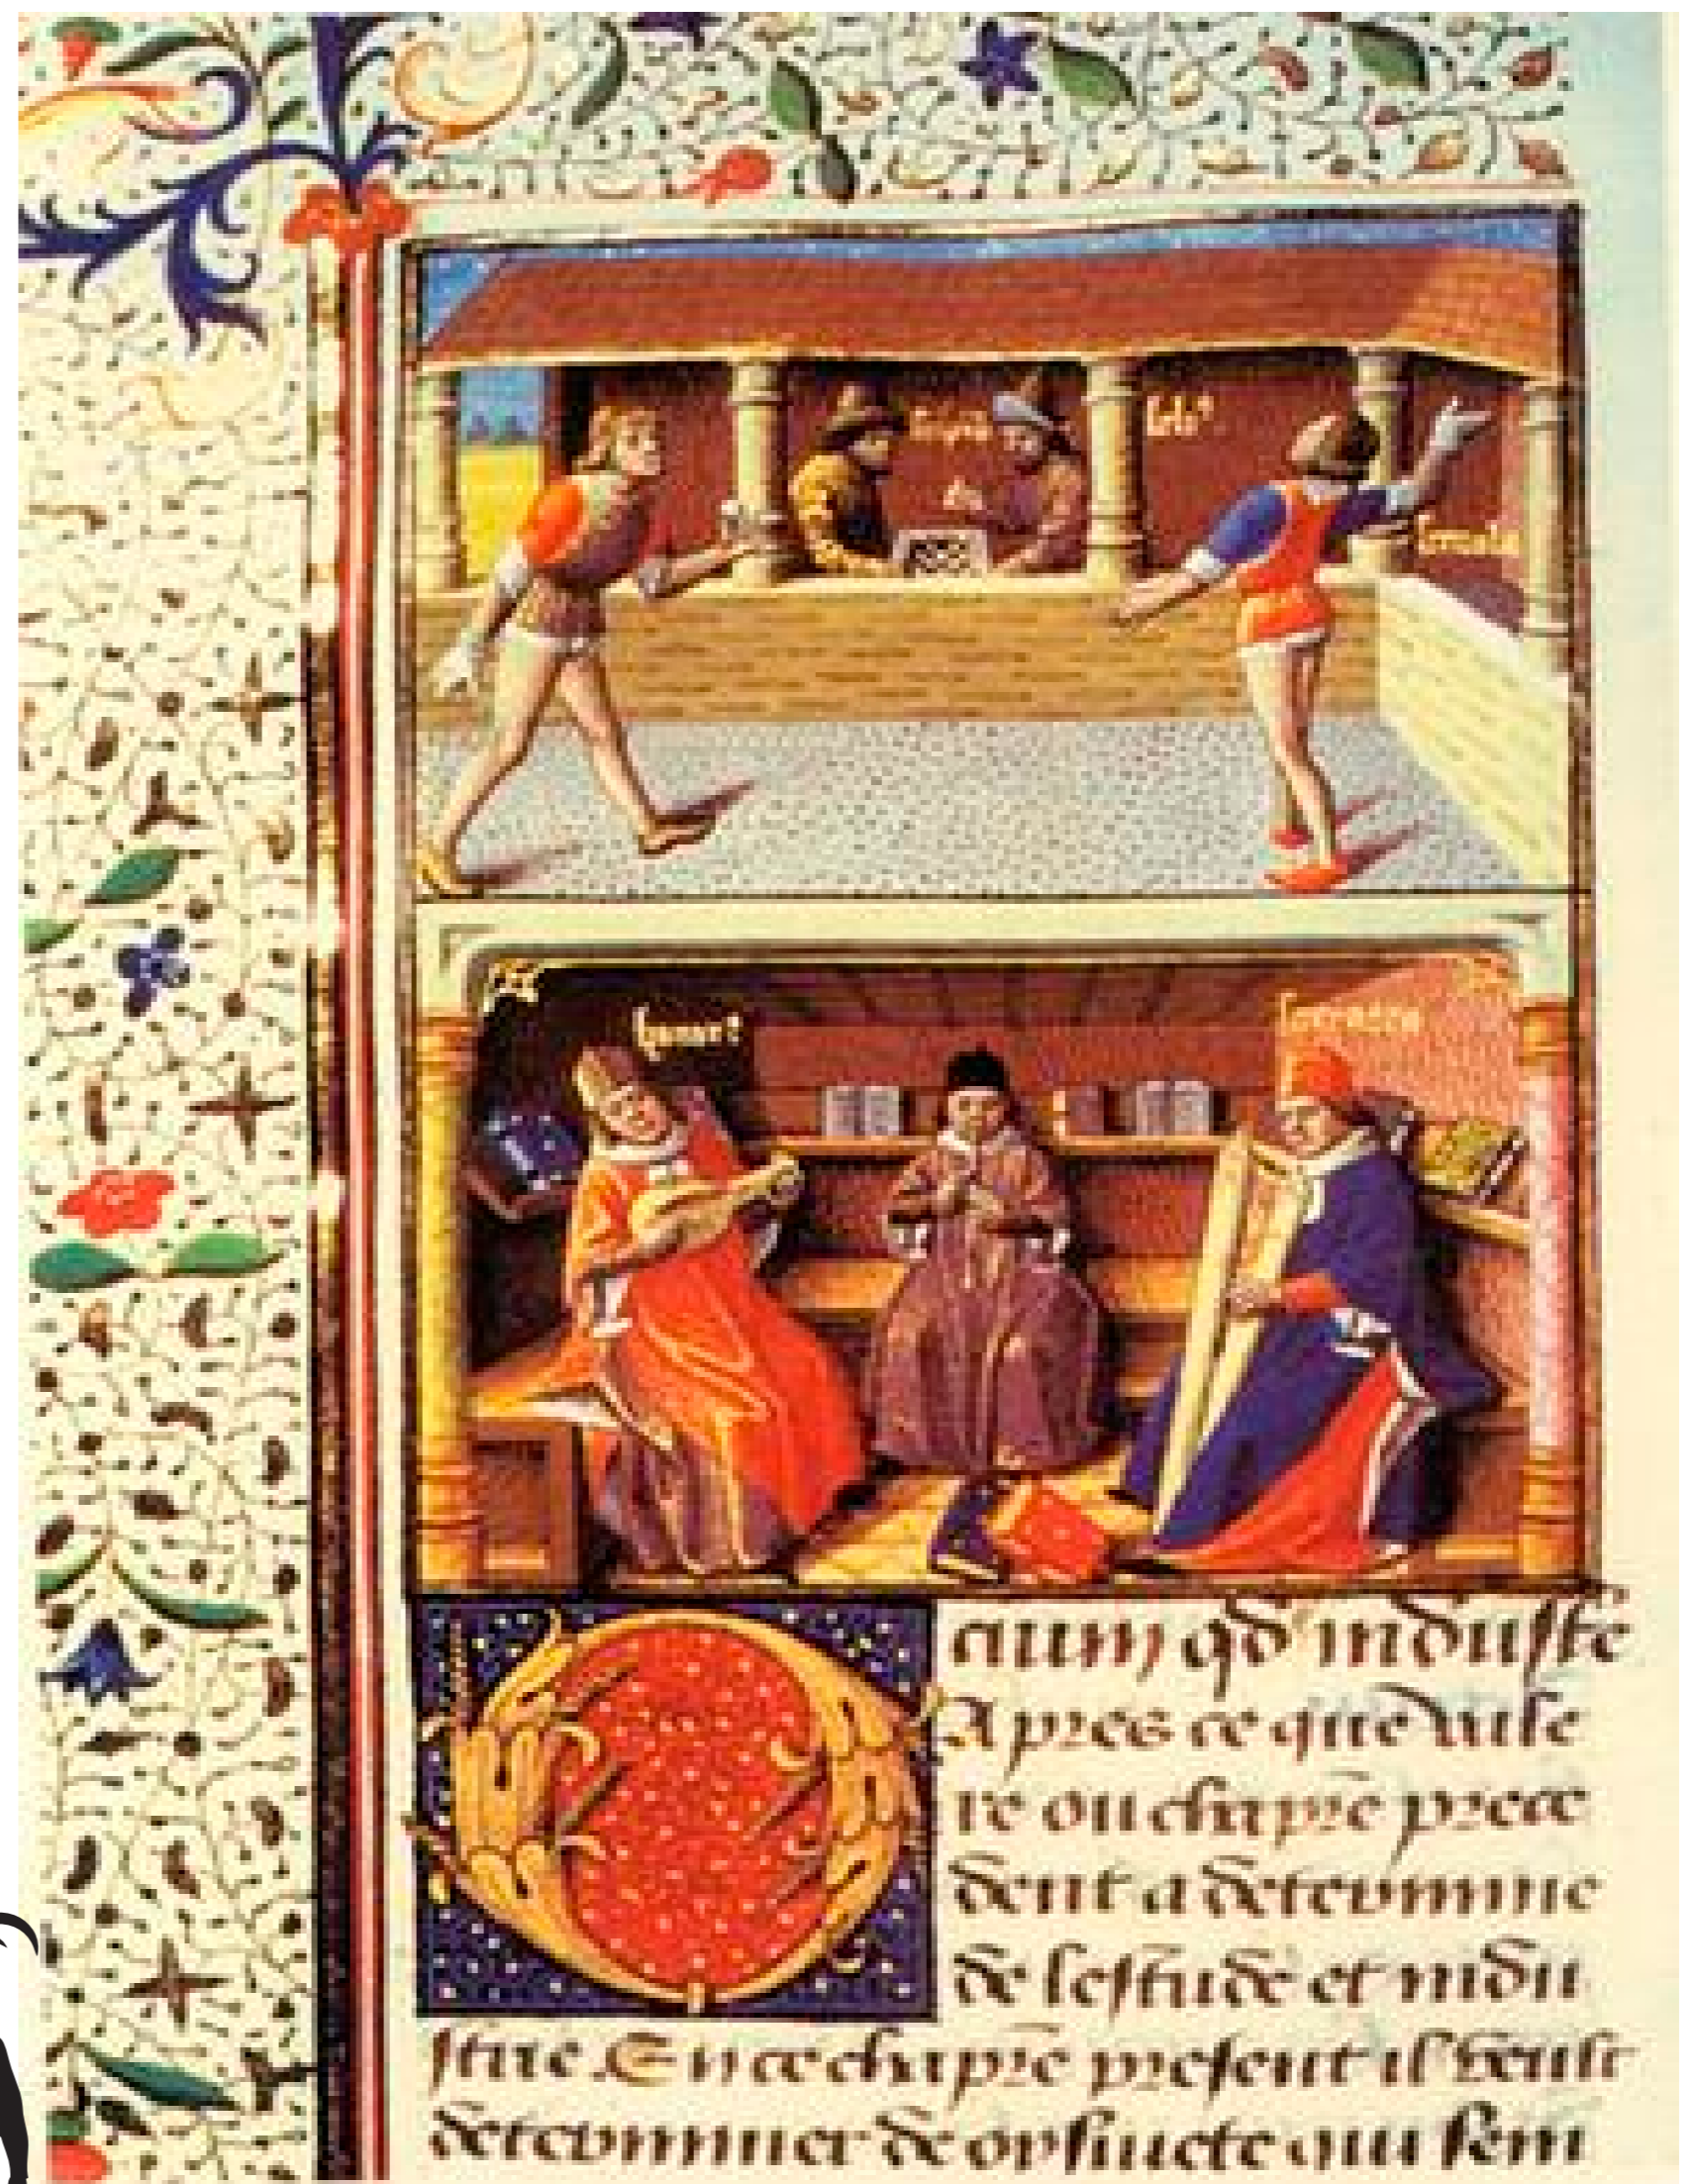 Ocium qd industrie
Apres ce que vale
re ou chapre prece
dent a determine
de lestude et indu
strie. En ce chapre present il veult
determiner de oysiuete qui sem